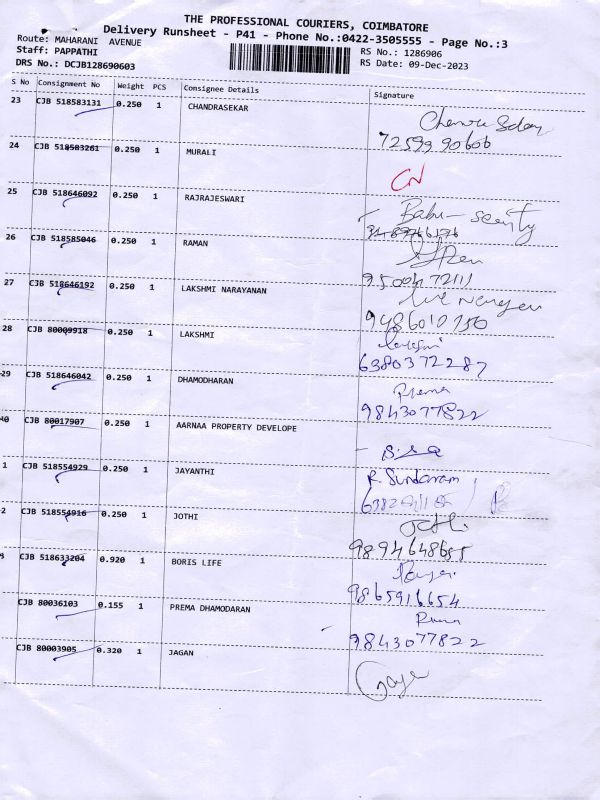 THE PROFESSIONAL COURIERS, COIMBATORE
Delivery Runsheet - P41 - Phone No.:0422-3505555 - Page No.:3
Route: MAHARANI AVENUE
RS No.: 1286906
Staff: PAPPATHI
RS Date: 09-Dec-2023
DRS No.: DCJB128690603
S No Consignment No Weight PCS Consignee Details Signature
23 CJB 518583131 0.250 1 CHANDRASEKAR
7259990606
24 CJB 518583261 0.250 1 MURALI
CN
25 CJB 518646092 0.250 1 RAJRAJESWARI
Babu -
26 CJB 518585046 0.250 1 RAMAN
27 CJB 518646192 0.250 1 LAKSHMI NARAYANAN
28 CJB 80009918 0.250 1 LAKSHMI
6380372287
29 CJB 518646042 0.250 1 DHAMODHARAN
Prema
9843077822
0 CJB 80017907 0.250 1 AARNAA PROPERTY DEVELOPE
1 CJB 518554929 0.250 1 JAYANTHI
R. Sundaram
2 CJB 518554916 0.250 1 JOTHI
Jothi
CJB 518633204 0.920 1 BORIS LIFE
9865916654
CJB 80036103 0.155 1 PREMA DHAMODARAN
9843077822
CJB 80003905 0.320 1 JAGAN